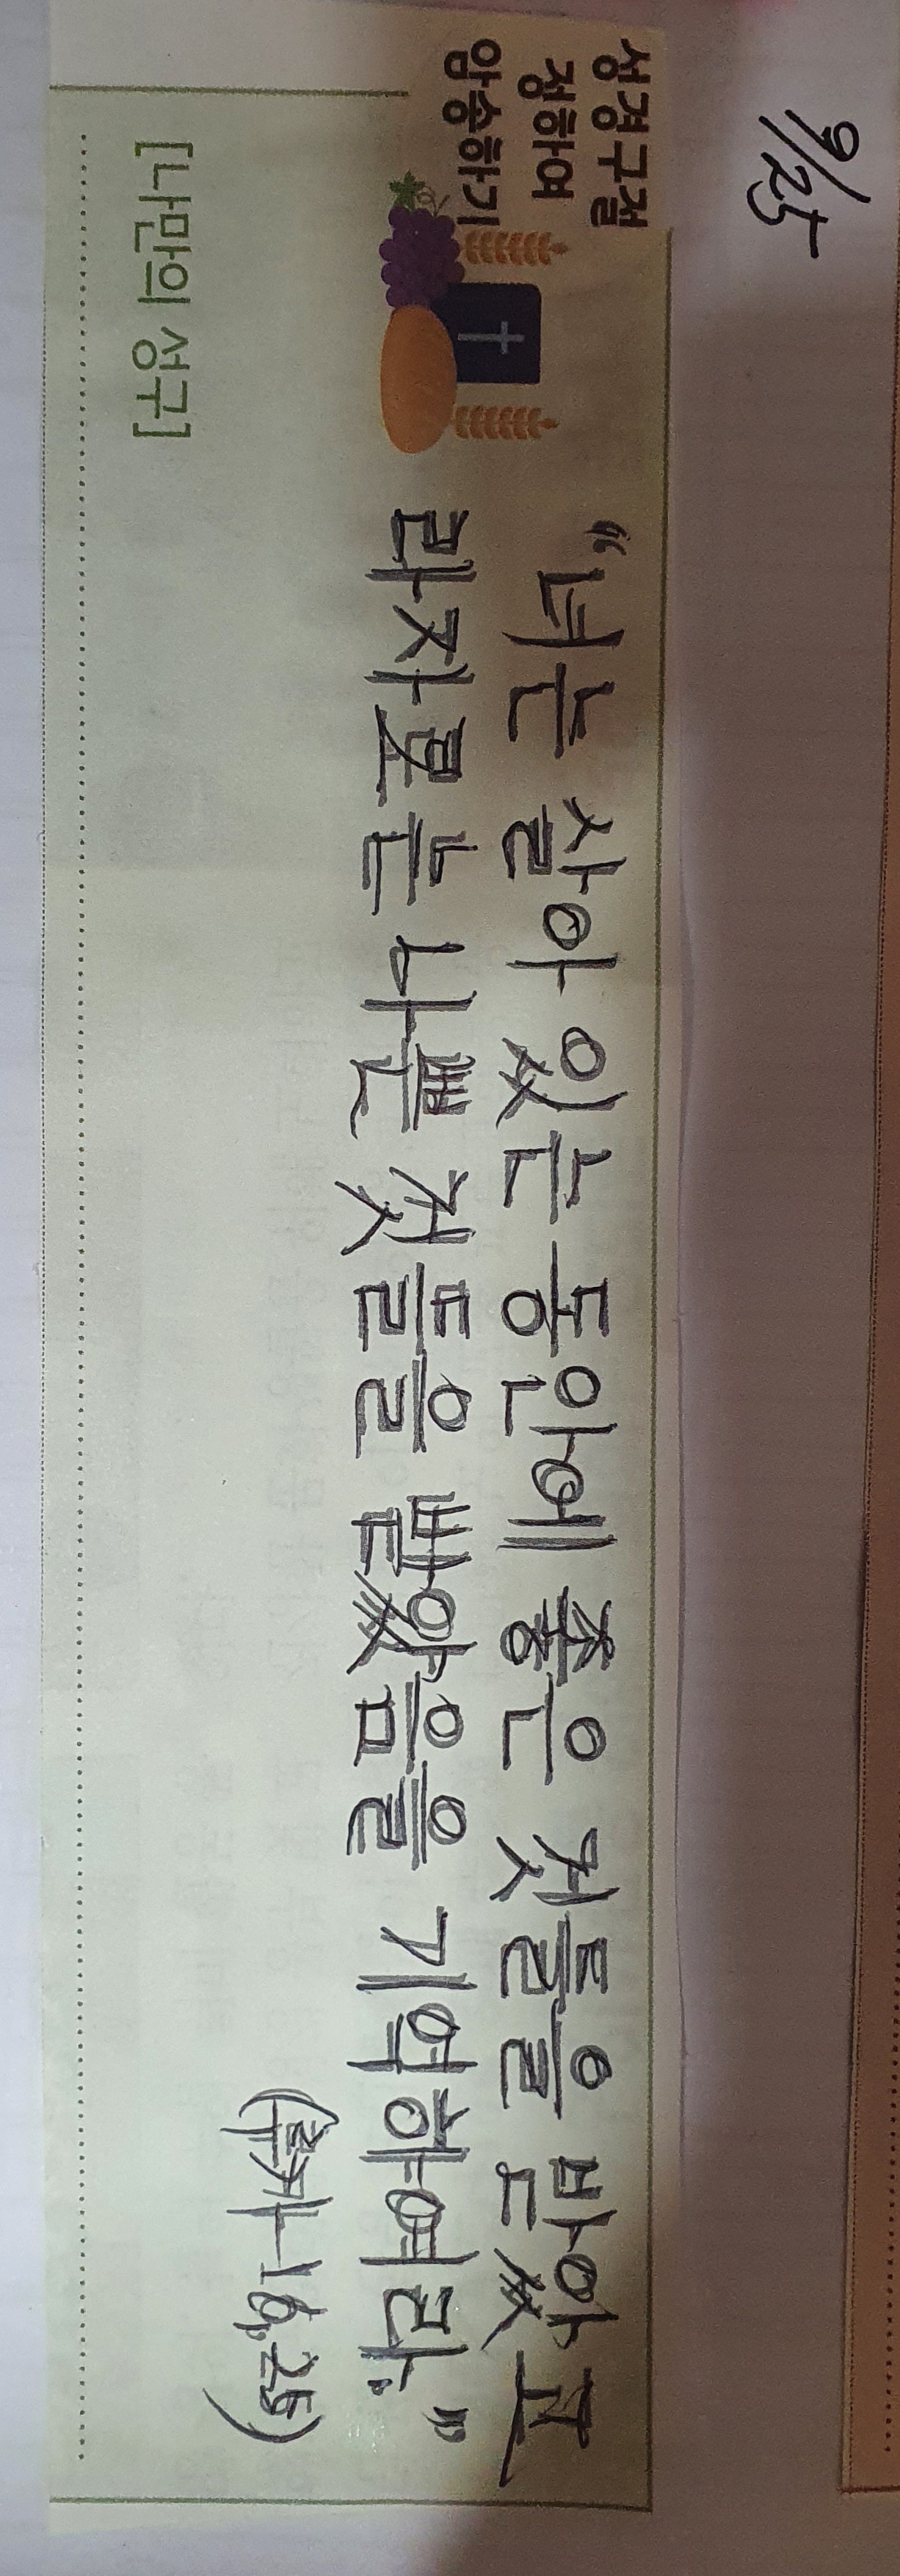 9/25
성경구절
정하여
암송하기
“너는 살아 있는 동안에 좋은 것들을 받았고
라자로는 나쁜 것들을 받았음을 기억하여라.”
(루카 16,25)
[나만의 성구]